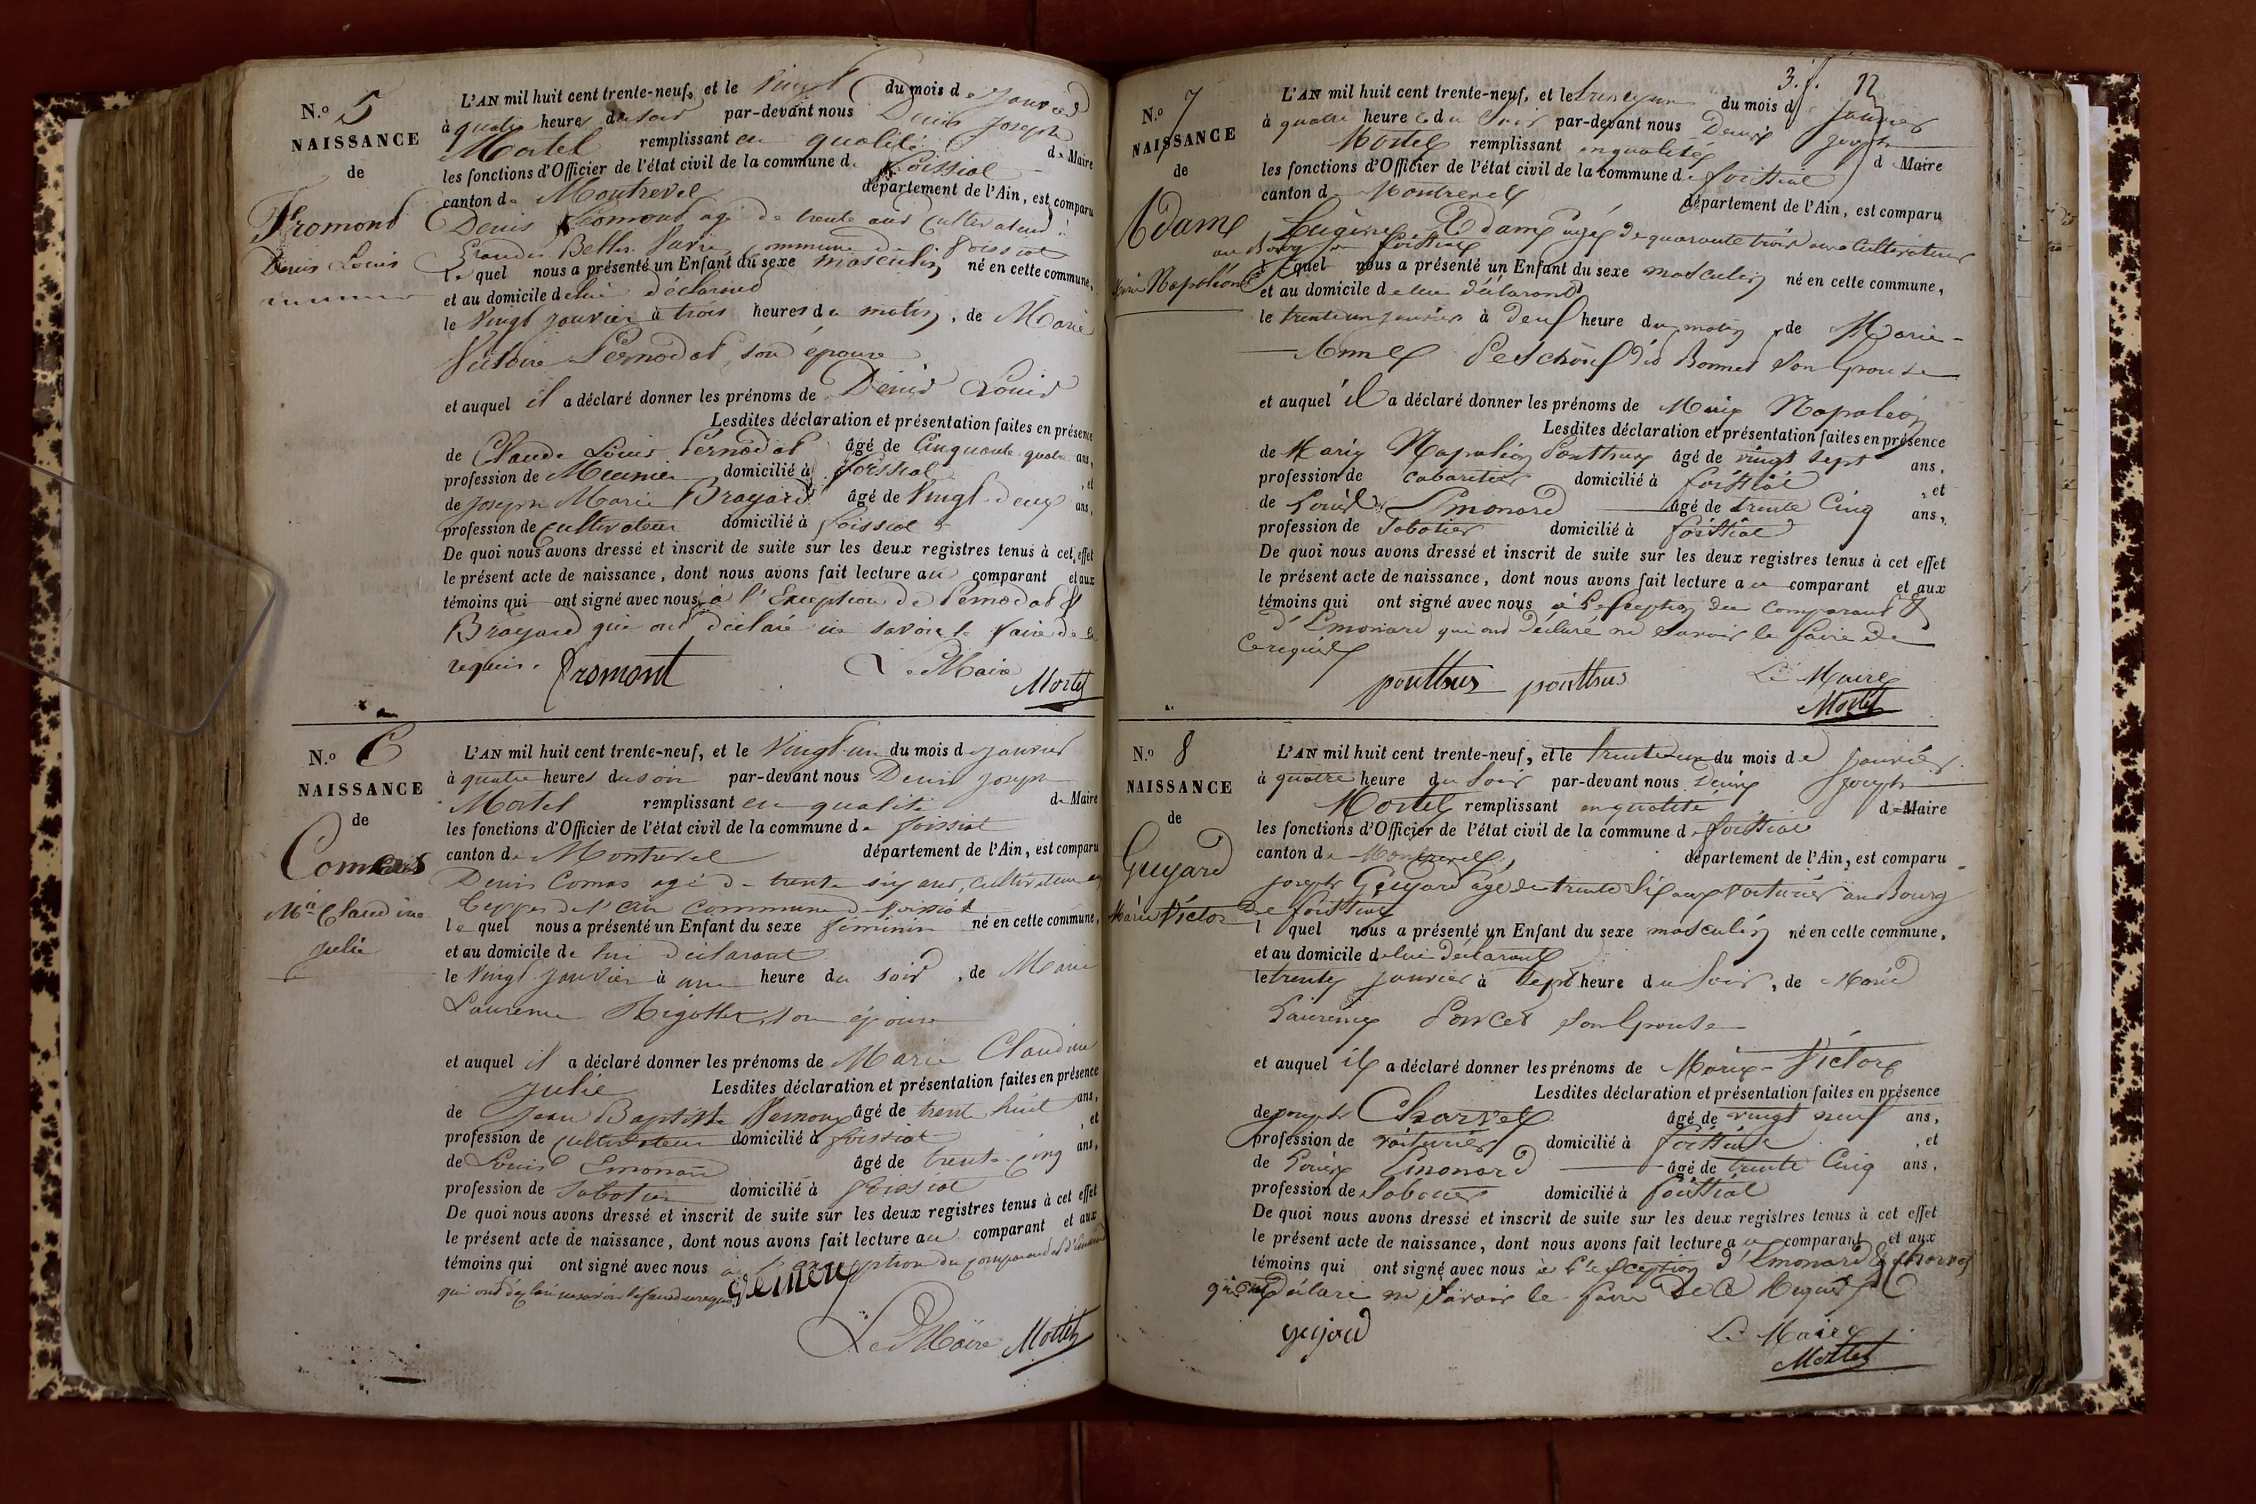 N.o 5
NAISSANCE
de
Fromond
Denis Louis
L'AN mil huit cent trente-neuf, et le Vingt du mois de Janvier
à quatre heures du soir par-devant nous Denis Joseph
Mortel remplissant en qualité de Maire
les fonctions d'Officier de l'état civil de la commune de foissiat
canton de Montrevel département de l'Ain, est comparu
Denis fromond agé de trente ans Cultivateur
commune de foissiat
Le quel nous a présenté un Enfant du sexe masculin né en cette commune,
et au domicile de lui déclarant
le Vingt janvier à trois heures du matin, de Marie
Victoire Pernodat, son épouse
et auquel il a déclaré donner les prénoms de Denis Louis
Lesdites déclaration et présentation faites en présence
de Claude Louis Pernodat âgé de Cinquante quatre ans,
profession de Meunier domicilié à foissiat, et
de Joseph Marie Brayard âgé de Vingt deux ans,
profession de Cultivateur domicilié à foissiat
De quoi nous avons dressé et inscrit de suite sur les deux registres tenus à cet effet
le présent acte de naissance, dont nous avons fait lecture au comparant et aux
témoins qui ont signé avec nous a l'Exception de Pernodat &
Brayard qui ont déclaré ne savoir le faire de ce
requis. fromont Le Maire
Mortel
N.o 6
NAISSANCE
de
Comas
Mie Claudine
julie
L'AN mil huit cent trente-neuf, et le Vingt-un du mois de janvier
à quatre heures du soir par-devant nous Denis joseph
Mortel remplissant en qualité de Maire
les fonctions d'Officier de l'état civil de la commune de foissiat
canton de Montrevel département de l'Ain, est comparu
Denis Comas agé de trente six ans, cultivateur
commune de foissiat
le quel nous a présenté un Enfant du sexe féminin né en cette commune,
et au domicile de lui déclarant
le Vingt janvier à une heure du soir, de Marie
Laurence Rigollet, son épouse
et auquel il a déclaré donner les prénoms de Marie Claudine
julie Lesdites déclaration et présentation faites en présence
de Jean Baptiste âgé de trente huit ans,
profession de cultivateur domicilié à foissiat, et
de Louis Emonard âgé de trente-cinq ans,
profession de Sabotier domicilié à foissiat
De quoi nous avons dressé et inscrit de suite sur les deux registres tenus à cet effet
le présent acte de naissance, dont nous avons fait lecture au comparant et aux
témoins qui ont signé avec nous à l'exception du comparant et d'Emonard
qui ont déclaré ne savoir le faire de ce requis
Le Maire Mortel
3. f. 12
N.o 7
NAISSANCE
de
Adam
Marie Napoléon
L'AN mil huit cent trente-neuf, et le trente un du mois de janvier
à quatre heure du soir par-devant nous Denis joseph
Mortel remplissant en qualité de Maire
les fonctions d'Officier de l'état civil de la commune de foissiat
canton de Montrevel département de l'Ain, est comparu
Eugène Adam agé de quarante trois ans Cultivateur
au Bourg de foissiat
l quel nous a présenté un Enfant du sexe masculin né en cette commune,
et au domicile de lui déclarant
le trente un janvier à deux heure du matin, de Marie-
Anne des Bonnes son épouse
et auquel il a déclaré donner les prénoms de Marie Napoléon
Lesdites déclaration et présentation faites en présence
de Marie Napoléon Ponthus âgé de vingt sept ans,
profession de Cabaretier domicilié à foissiat, et
de Louis Emonard âgé de trente Cinq ans,
profession de Sabotier domicilié à foissiat
De quoi nous avons dressé et inscrit de suite sur les deux registres tenus à cet effet
le présent acte de naissance, dont nous avons fait lecture au comparant et aux
témoins qui ont signé avec nous à l'exception du comparant &
d'Emonard qui ont déclaré ne savoir le faire de
ce requis
ponthus ponthus Le Maire
Mortel
N.o 8
NAISSANCE
de
Guyard
Marie Victor
L'AN mil huit cent trente-neuf, et le trente un du mois de janvier
à quatre heure du soir par-devant nous Denis joseph
Mortel remplissant en qualité de Maire
les fonctions d'Officier de l'état civil de la commune de foissiat
canton de Montrevel, département de l'Ain, est comparu
joseph Guyard agé de trente six ans voiturier au Bourg
de foissiat
l quel nous a présenté un Enfant du sexe masculin né en cette commune,
et au domicile de lui déclarant
le trente janvier à sept heure du soir, de Marie
Laurence Poncet son épouse
et auquel il a déclaré donner les prénoms de Marie-Victor
Lesdites déclaration et présentation faites en présence
de joseph Charvet âgé de vingt neuf ans,
profession de voiturier domicilié à foissiat, et
de Louis Emonard âgé de trente Cinq ans,
profession de Sabotier domicilié à foissiat
De quoi nous avons dressé et inscrit de suite sur les deux registres tenus à cet effet
le présent acte de naissance, dont nous avons fait lecture au comparant et aux
témoins qui ont signé avec nous à l'exception d'Emonard & Charvet
qui ont déclaré ne savoir le faire de ce requis
guyard Le Maire
Mortel